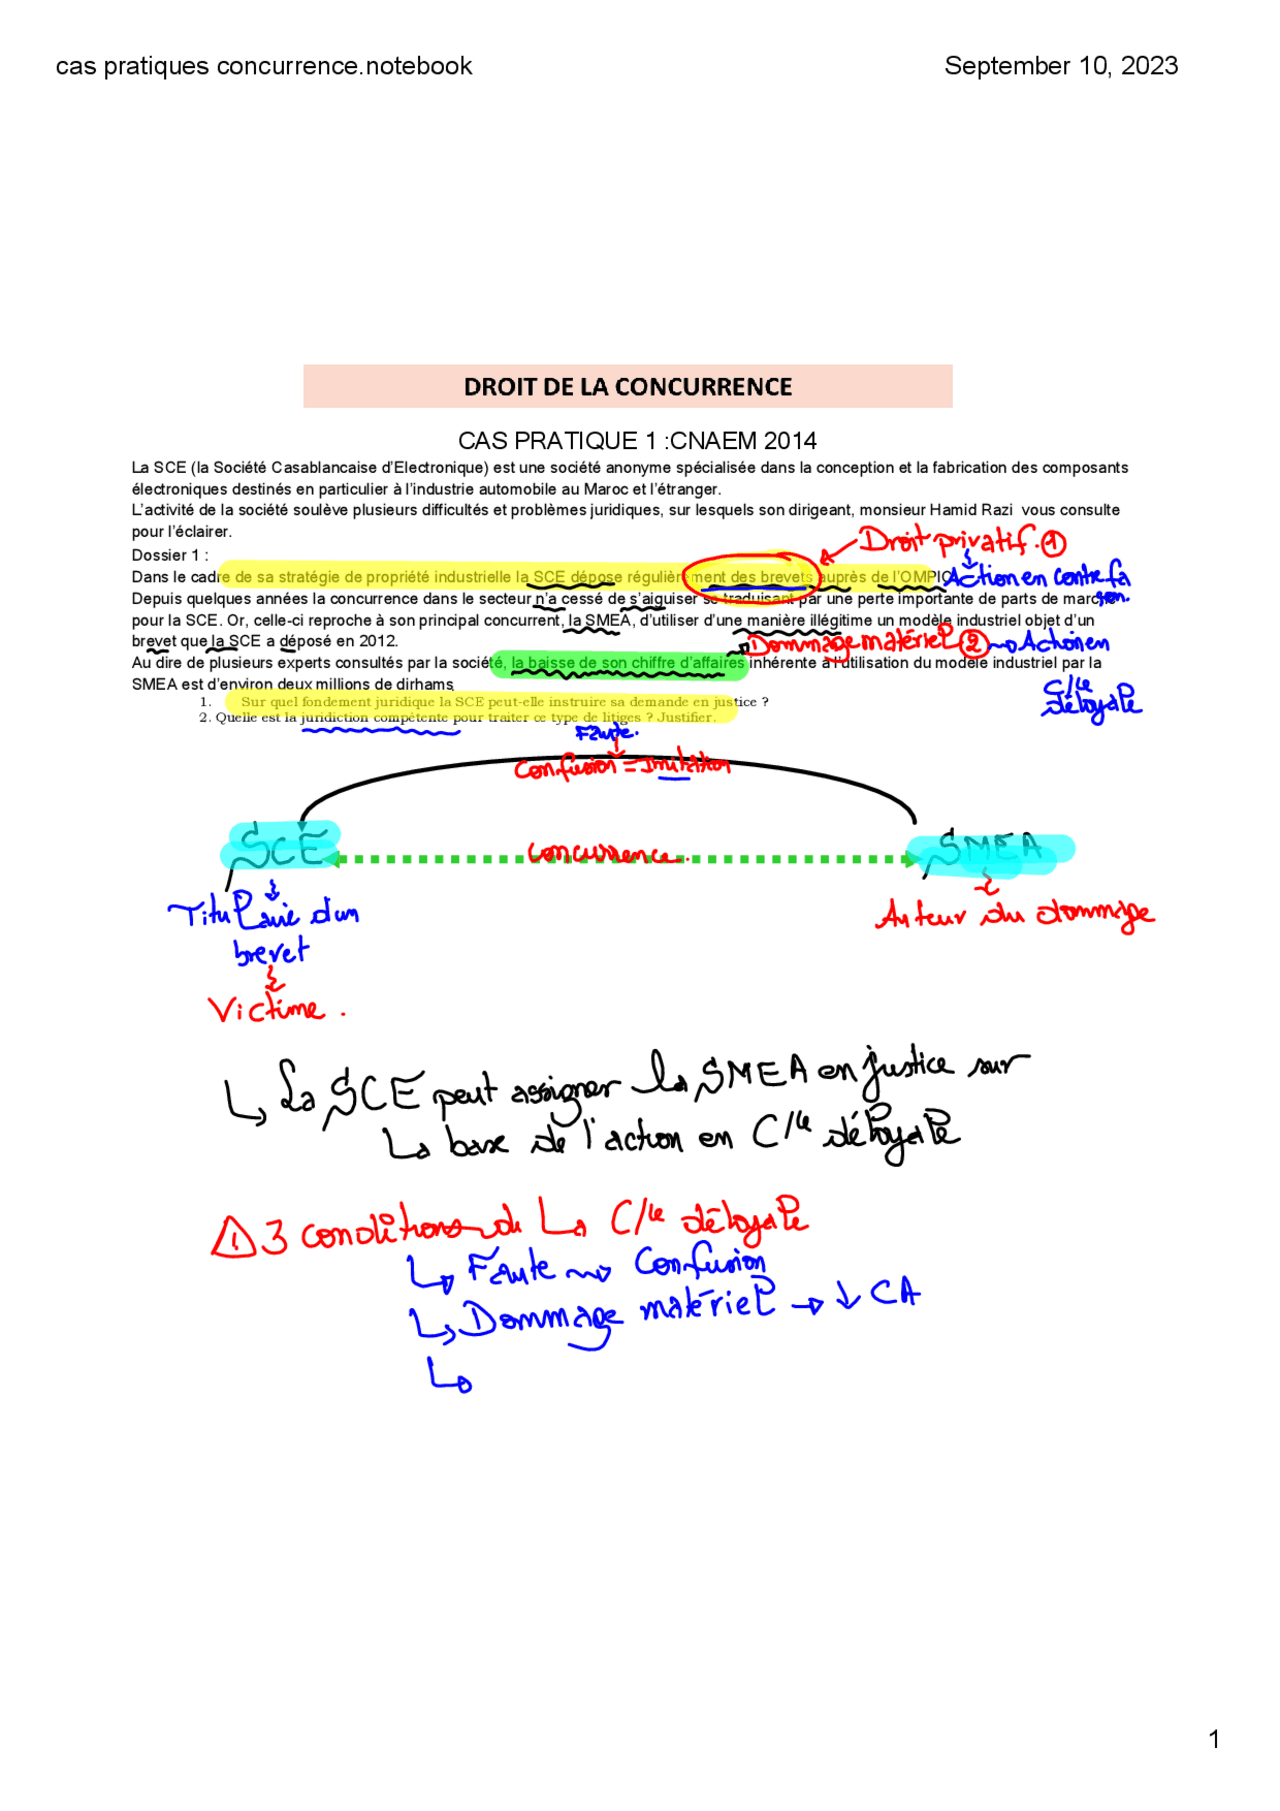 cas pratiques concurrence.notebook
September 10, 2023
DROIT DE LA CONCURRENCE
CAS PRATIQUE 1 :CNAEM 2014
La SCE (la Société Casablancaise d'Electronique) est une société anonyme spécialisée dans la conception et la fabrication des composants
électroniques destinés en particulier à l'industrie automobile au Maroc et l'étranger.
L'activité de la société soulève plusieurs difficultés et problèmes juridiques, sur lesquels son dirigeant, monsieur Hamid Razi vous consulte
pour l'éclairer.
Droit privatif. 1
Dossier 1 :
Dans le cadre de sa stratégie de propriété industrielle la SCE dépose régulièrement des brevets auprès de l'OMPIC
Action en contrefa
son.
Depuis quelques années la concurrence dans le secteur n'a cessé de s'aiguiser se traduisant par une perte importante de parts de marché
pour la SCE. Or, celle-ci reproche à son principal concurrent, la SMEA, d'utiliser d'une manière illégitime un modèle industriel objet d'un
brevet que la SCE a déposé en 2012.
Dommage matériel 2 Action en
C/ce
déloyale
Au dire de plusieurs experts consultés par la société, la baisse de son chiffre d'affaires inhérente à l'utilisation du modèle industriel par la
SMEA est d'environ deux millions de dirhams
1. Sur quel fondement juridique la SCE peut-elle instruire sa demande en justice ?
2. Quelle est la juridiction compétente pour traiter ce type de litiges ? Justifier.
Faute.
Confusion = Imitation
SCE
concurrence.
SMEA
Titulaire d'un
brevet
Auteur du dommage
Victime.
La SCE peut assigner la SMEA en justice sur
la base de l'action en C/ce déloyale
3 conditions de la C/ce déloyale
Faute → Confusion
Dommage matériel → ↓ CA
1